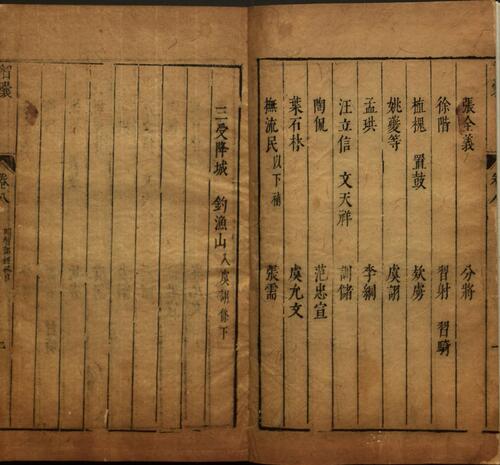 張全義 分將
徐階 習射 習騎
植槐 置鼓 欵虜
姚夔等 虞詡
孟珙 李綱
汪立信 文天祥 訓儲
陶侃 范忠宣
葉石林 虞允文
撫流民以下補 張需
三受降城 釣漁山入虞詡條下
智囊
卷八